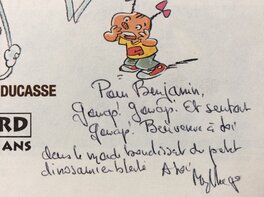 DUCASSE
RD
ANS
Pour Benjamin,
Gowap! Gowap! Et surtout
Gowap! Bienvenue à toi
dans le monde bondissant du petit
dinosaure
A toi